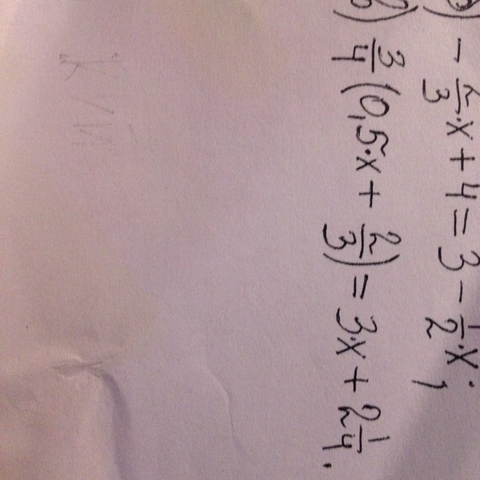 ) - 2/3·x + 4 = 3 - 1/2·x;
) 3/4(0,5·x + 2/3) = 3·x + 2 1/4.